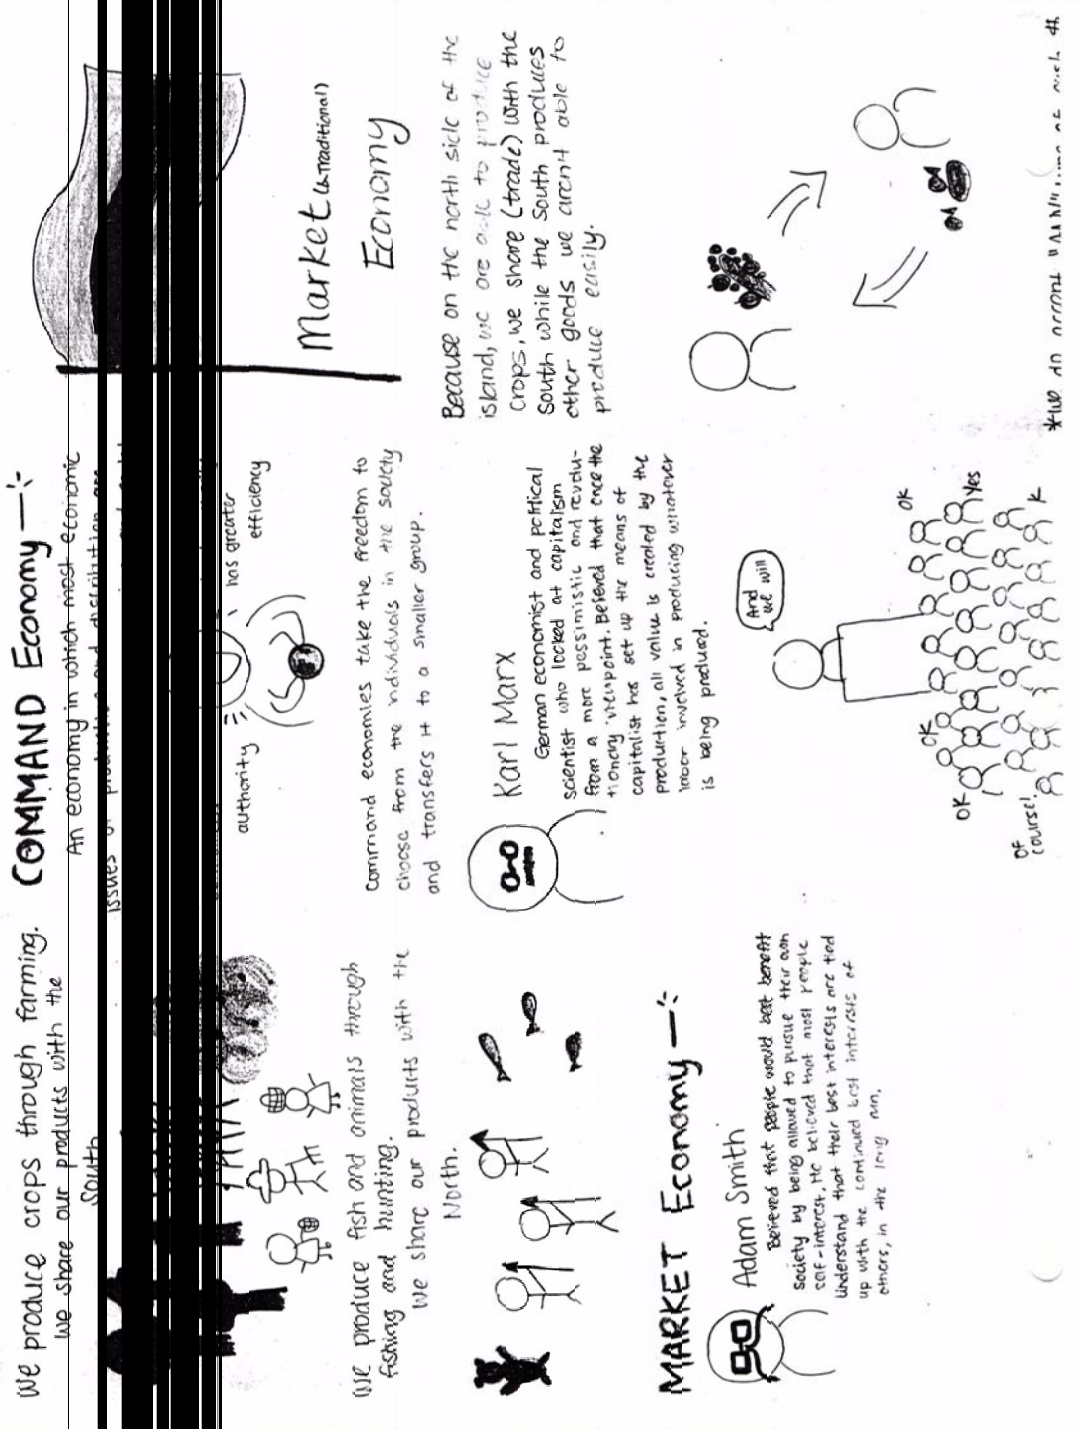 We produce crops through farming.
We share our products with the
South
We produce fish and animals through
fishing and hunting.
We share our products with the
North.
MARKET Economy
Adam Smith
Believed that people would best benefit
society by being allowed to pursue their own
self-interest. He believed that most people
understand that their best interests are tied
up with the continued best interests of
others, in the long run.
COMMAND Economy
An economy in which most economic
issues of
authority
has greater
efficiency
Command economies take the freedom to
choose from the individuals in the society
and transfers it to a smaller group.
Karl Marx
German economist and political
scientist who looked at capitalism
from a more pessimistic and revolu-
tionary viewpoint. Believed that once the
capitalist has set up the means of
production, all value is created by the
labor involved in producing whatever
is being produced.
And
we will
OK
OK
OK
Yes
K
Of
course!
Market (& Traditional)
Economy
Because on the north side of the
island, we are able to produce
crops, we share (trade) with the
South while the South produces
other goods we aren't able to
produce easily.
*We do